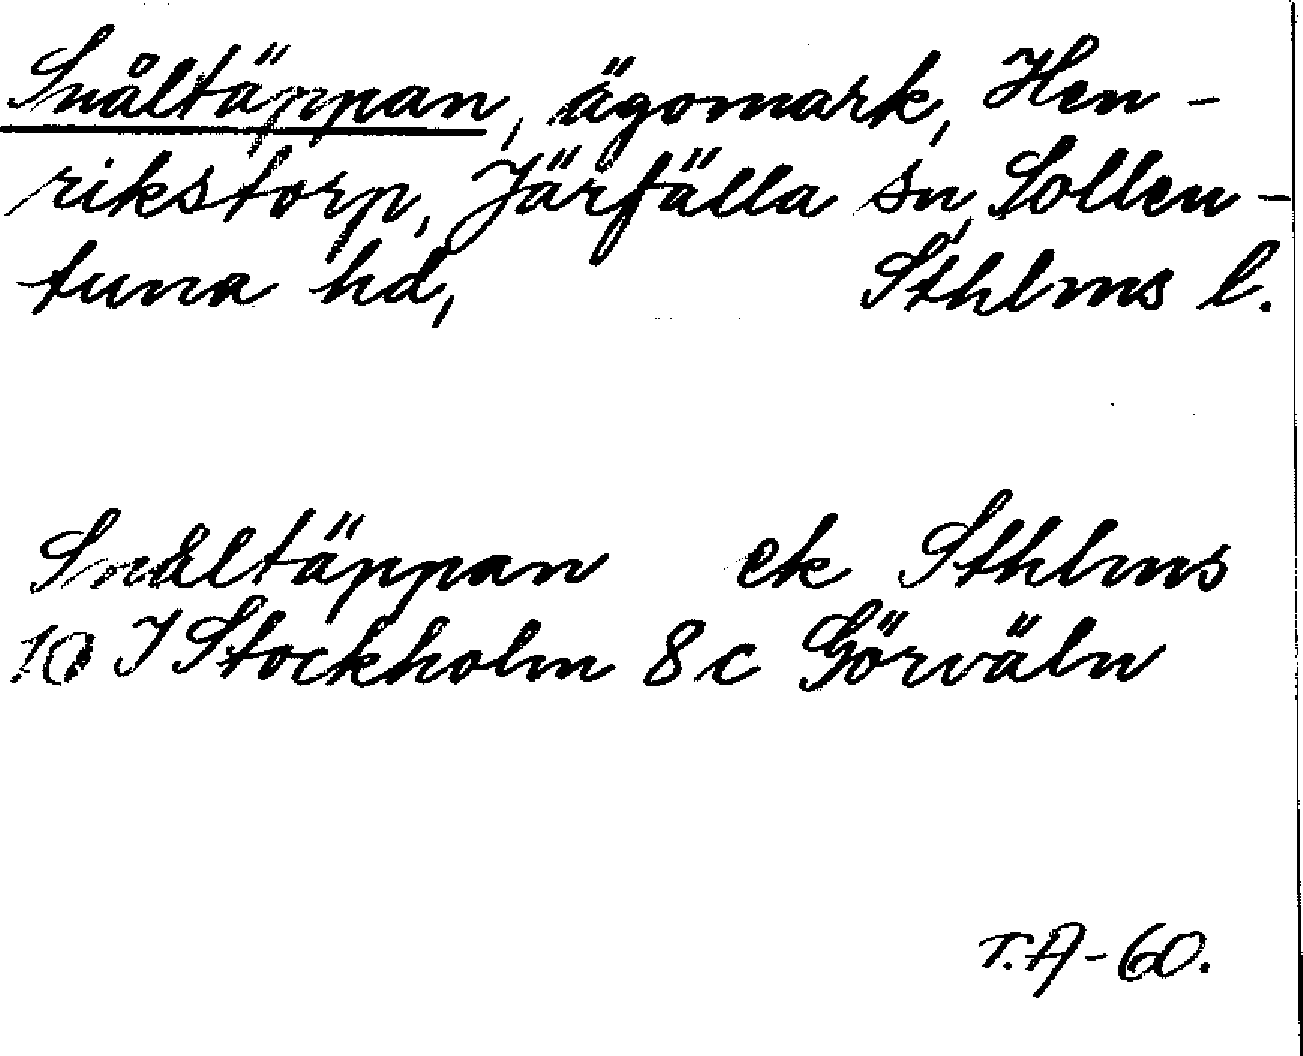 Snåltäppan, ägomark, Hen-
rikstorp, Järfälla sn, Sollen-
tuna hd, Sthlms l.
Snåltäppan ek Sthlms
10 I Stockholm 8 c Görväln
T.A-60.